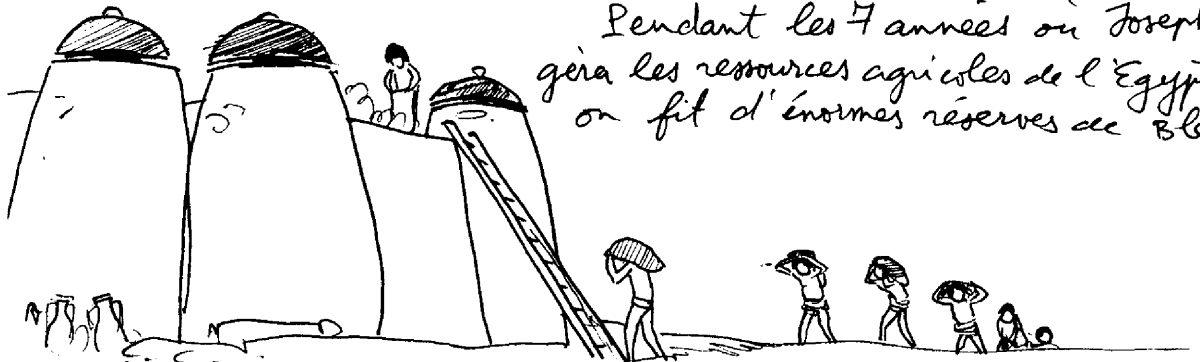 Pendant les 7 années où Joseph
géra les ressources agricoles de l'Egyp
on fit d'énormes réserves de Bl